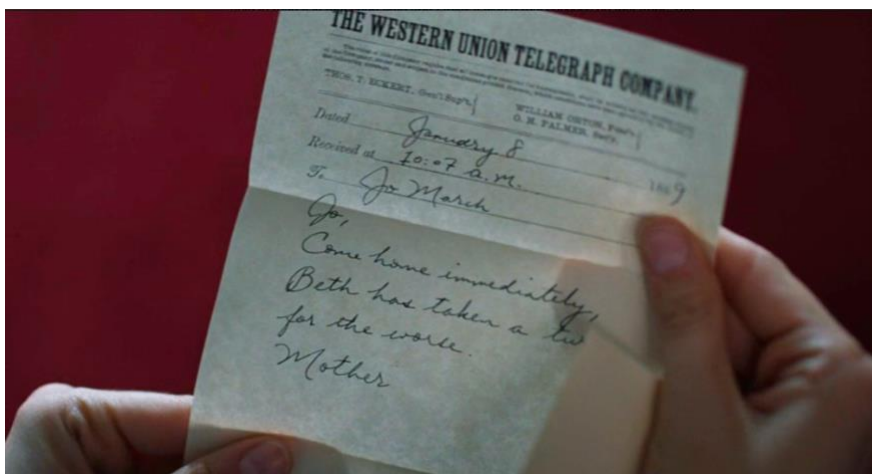 THE WESTERN UNION TELEGRAPH COMPANY.
THOS. T. ECKERT, Gen'l Sup't,
WILLIAM ORTON, Pres't,
O. H. PALMER, Sec'y.
Dated January 8 1869
Received at 10:07 a.m.
To Jo March
Jo,
Come home immediately,
Beth has taken a tu
for the worse.
Mother